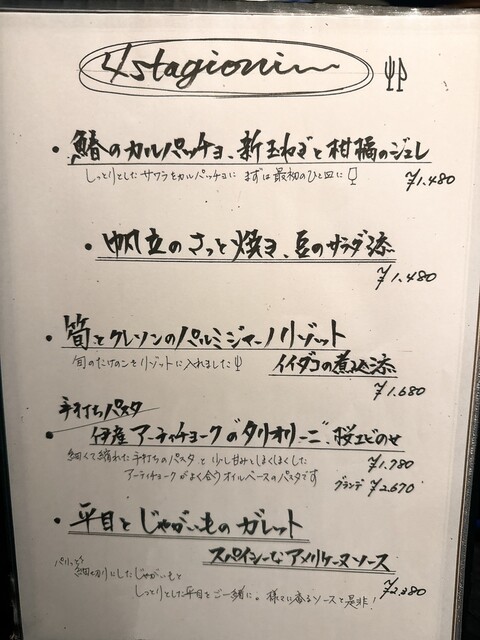 4stagioni
・鰆のカルパッチョ、新玉ねぎと柑橘のジュレ
しっとりとしたサワラをカルパッチョに まずは最初のひと皿に
¥1.480
・帆立のさっと焼き、豆のサラダ添え
¥1.480
・筍とクレソンのパルミジャーノリゾット
旬のたけのこをリゾットに入れました
イイダコの煮込添え
¥1.680
手打ちパスタ
・伊産アーティチョークの"タリオリーニ"桜エビのせ
細くて縮れた手打ちのパスタと少し甘みとほくほくした
¥1.780
アーティチョークがよく合うオイルベースのパスタです
グランデ ¥2.670
・平目とじゃがいものガレット
スパイシーなアメリケーヌソース
パリッと
細切りにしたじゃがいもと
しっとりとした平目をご一緒に。様々に香るソースと是非!
¥2.280